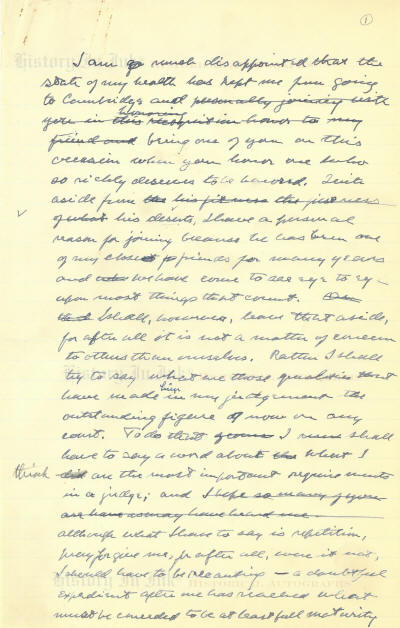 ①
I am so much disappointed that the
state of my health has kept me from going
to Cambridge and personally joining with
you in this recognition honor to my
honoring
friend and being one of you on this
occasion when you honor one who
so richly deserves to be honored. Quite
aside from the his fitness the justness
of what his deserts, I have a personal
reason for joining because he has been one
of my closest friends for many years
and we have come to see eye to eye
upon most things that count.
that I shall, however, leave that aside,
for after all it is not a matter of concern
to others than ourselves. Rather I shall
try to say what are those qualities that
have made him in my judgement the
outstanding figure of now on any
court. To do that I must shall
have to say a word about what I
think did are the most important requirements
in a judge; and I hope so many of you
are have as may have heard me
although what I have to say is repetition,
pray forgive me, for after all, were it not,
I should have to be recanting — a doubtful
expedient after one has reached what
must be conceded to be at least full maturity
History In Ink
HISTORICAL AUTOGRAPHS
History In Ink
History In Ink
HISTORICAL AUTOGRAPHS